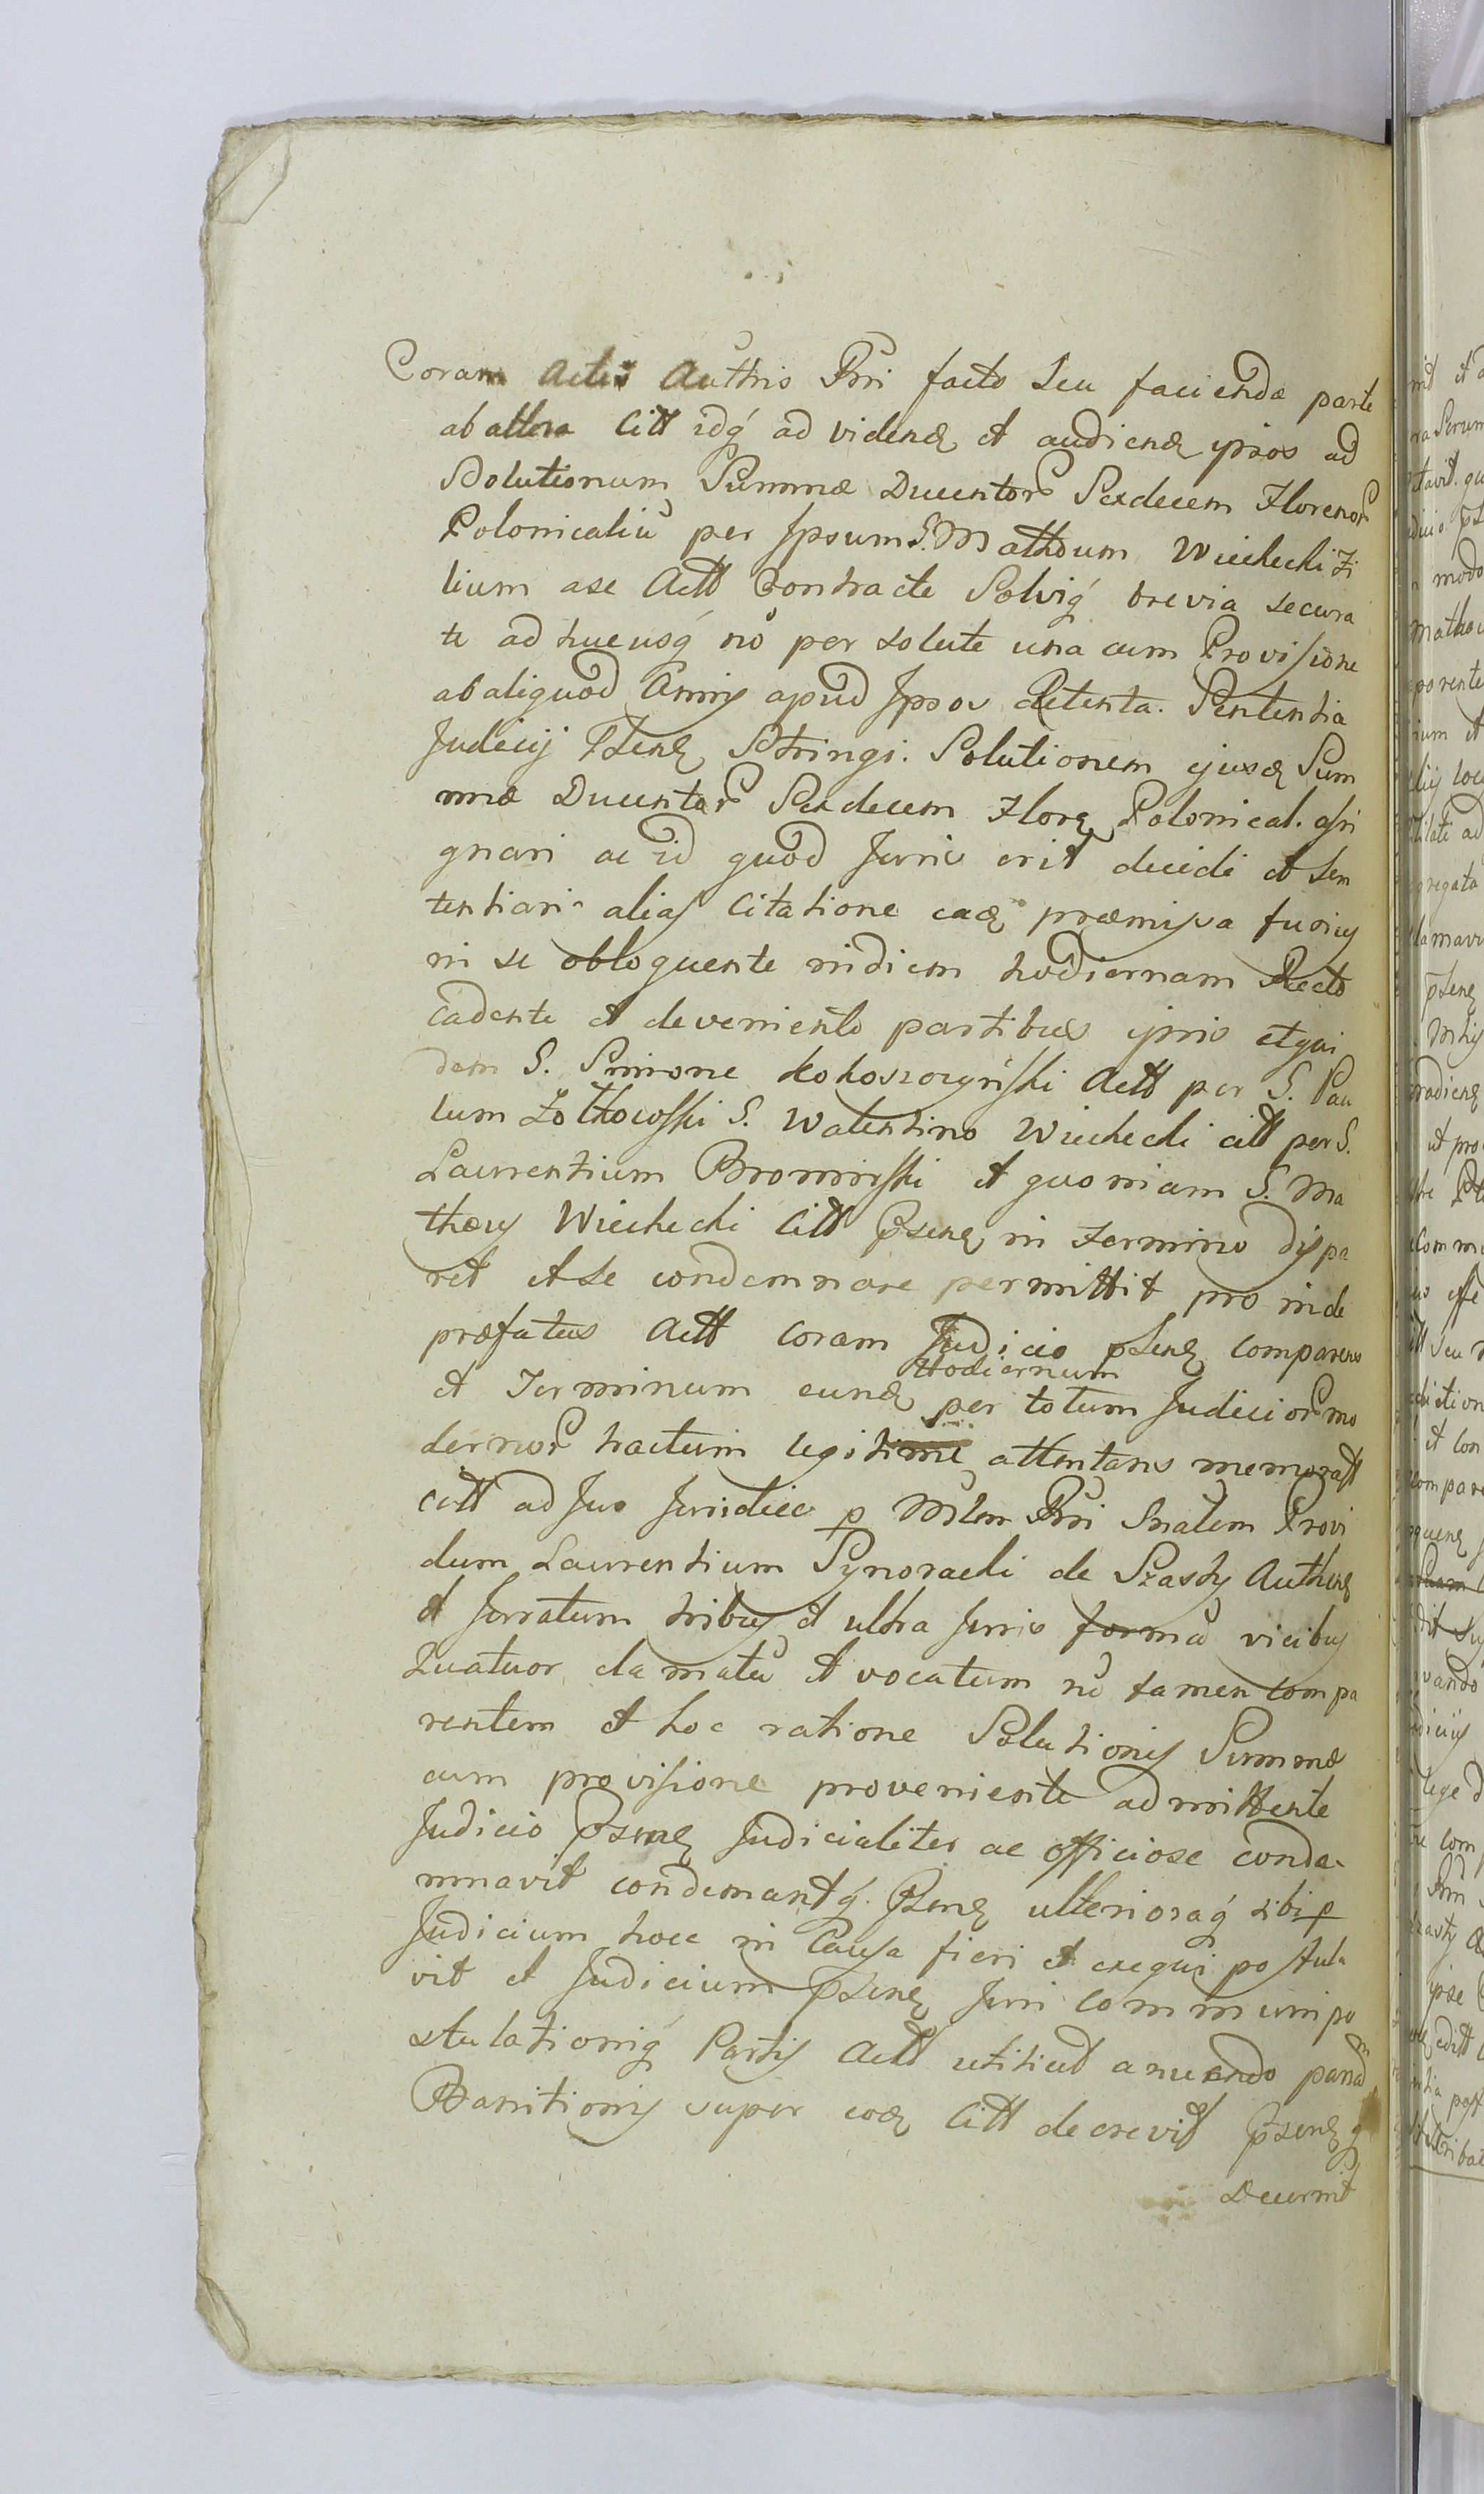 Coram Actis Authis Pni facto Seu faciendæ parte
ab altera Citt idq́ ad vidend et audiend ipsos ad
Solutionum Summæ Ducentor Sexdecem Florenor
Polonicaliũ per Ipsum S. Mathæum Wiechecki Fi
lium a se Actt Contracte Solviq́ brevia secura
te ad hucusq́ nõ per solute una cum Provisione
ab aliquod Annis apud Ipsos detenta. Sententia
Judicij Psent Stringi. Solutionem ejusd Sum
mæ Ducentor Sexdecem Flore Polonical. assi
gnari ac id quod Juris erit decidi et Sen
tentiari alias Citatione ead præmissa fusius
in se obloquente in diem hodiernam Recto
cadente et deveniente partibus ipsis et qui
dem S. Simone Kokoszczyński Actt per S. Pau
lum Żółkowski S. Walentino Wiechecki citt per S.
Laurentium Bromirski et quoniam S. Ma
theus Wiechecki Citt Psent in Termino dispa
ret et se condemnare permittit pro inde
præfatus Actt Coram Judicio psent comparens
Hodiernum
et Terminum eund per totum Judicior mo
dernor tractum legitime attentans memoratt
citt ad Jus Juridice p Mlem Pni Snalem Provi
dum Laurentium Synoracki de Szasty Authent
et Juratum tribus et ultra Juris formã vicibus
Quatuor clamatũ et vocatum nõ tamen compa
rentem et hoc ratione Solutionis Summæ
cum provisione proveniente admittente
Judicio Psent Judicialiter ac officiose conde
mnavit condemnantq́. Psent ulterioraq́ sibi p
Judicium hocce in Causa fieri et exequi postula
vit et Judicium psent Juri Communi po
stulationiq́ Partis Actt uti sicut annuendo pænam
Banitionis super eod Citt decrevit Psent q́
Decernit